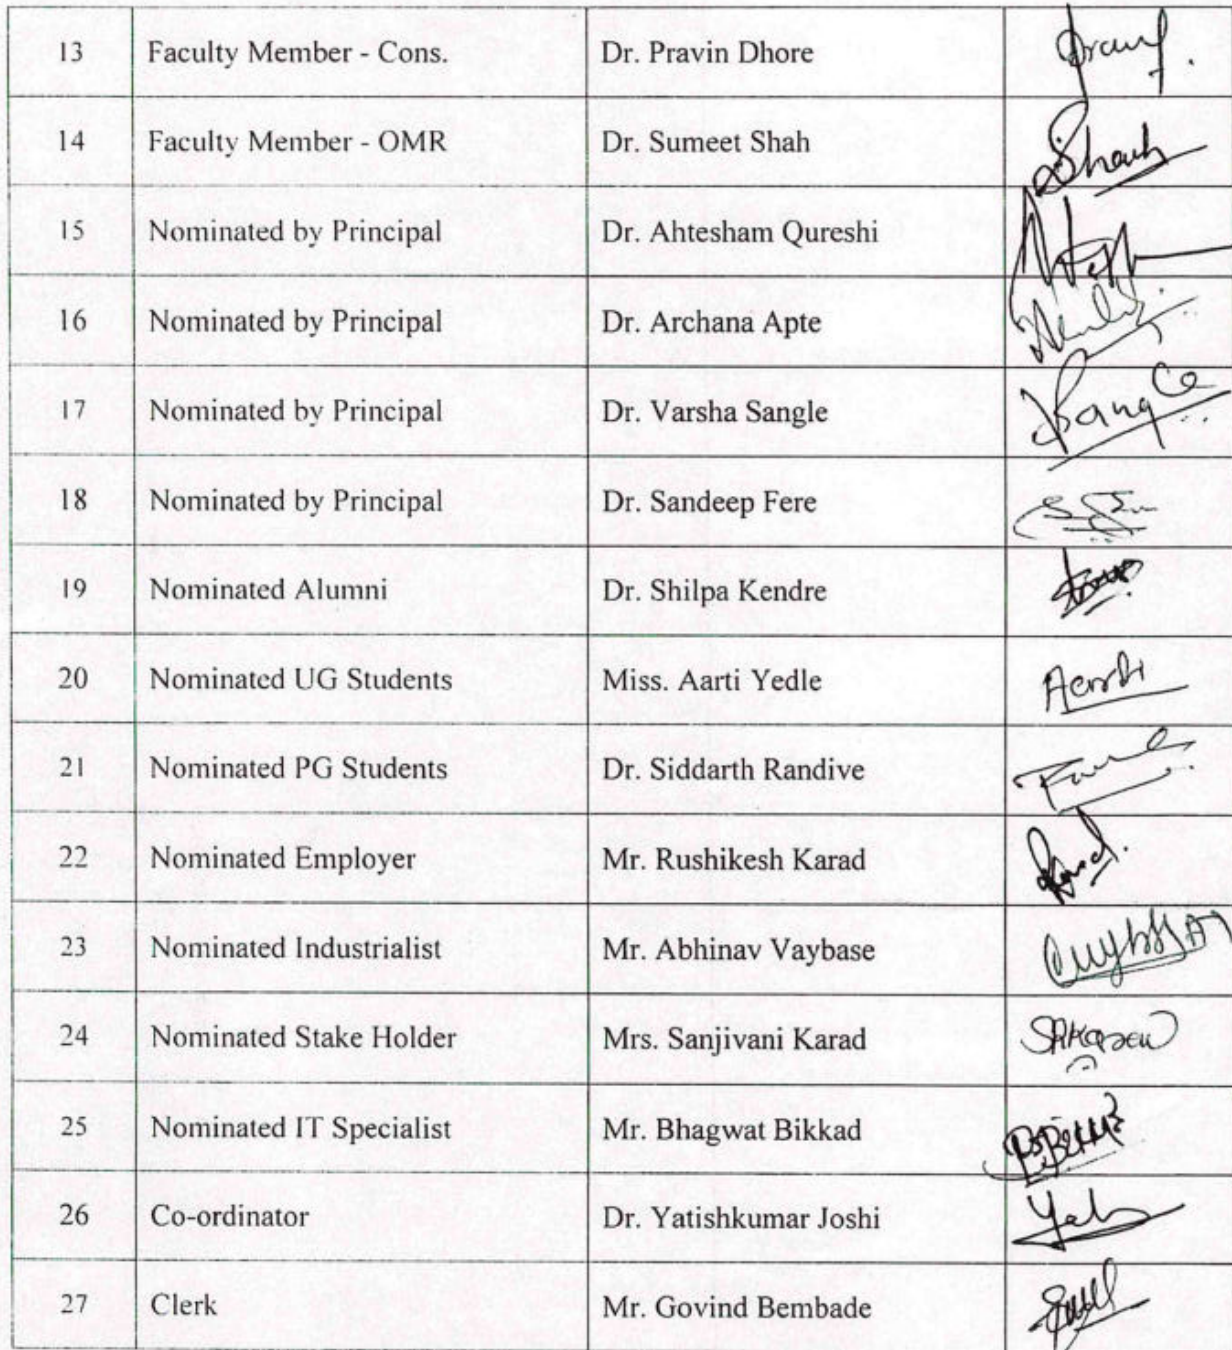 13 Faculty Member - Cons. Dr. Pravin Dhore
14 Faculty Member - OMR Dr. Sumeet Shah Shah
15 Nominated by Principal Dr. Ahtesham Qureshi
16 Nominated by Principal Dr. Archana Apte
17 Nominated by Principal Dr. Varsha Sangle
18 Nominated by Principal Dr. Sandeep Fere
19 Nominated Alumni Dr. Shilpa Kendre
20 Nominated UG Students Miss. Aarti Yedle
21 Nominated PG Students Dr. Siddarth Randive
22 Nominated Employer Mr. Rushikesh Karad
23 Nominated Industrialist Mr. Abhinav Vaybase
24 Nominated Stake Holder Mrs. Sanjivani Karad
25 Nominated IT Specialist Mr. Bhagwat Bikkad
26 Co-ordinator Dr. Yatishkumar Joshi
27 Clerk Mr. Govind Bembade